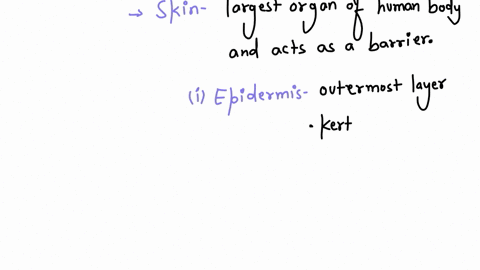 → Skin- largest organ of human body
and acts as a barrier.
(i) Epidermis- outermost layer
· kert